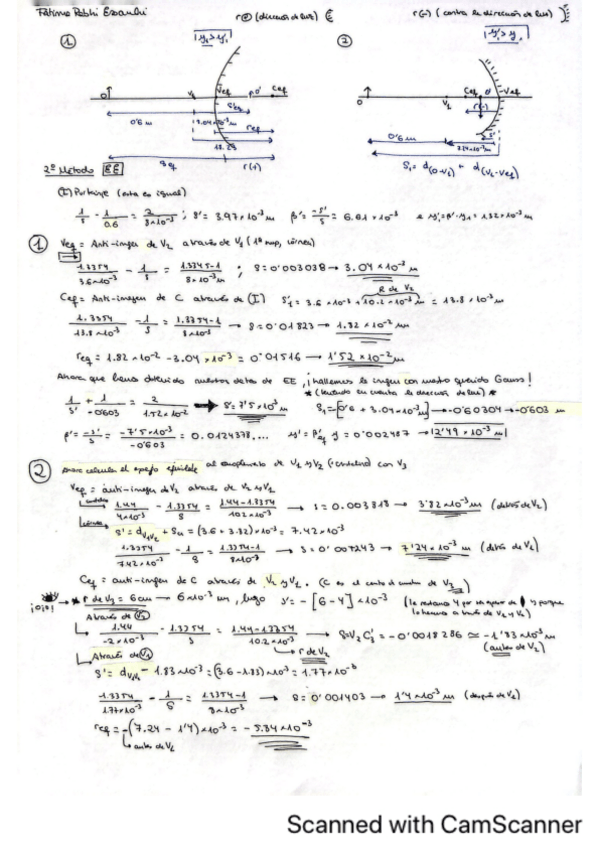 Fátima Rabhi Essaubi
r⊕ (dirección de luz)
r(-) (contra la dirección de luz)
①
|y'₂>y'₁|
②
|y'₃>y'₁|
O V₁ Vef O' Cef
O V₁ Cef O' Vef
r(-)
0'6 m
3.04×10⁻³m
ref
r(+)
Sef
0'6 m
7.24×10⁻³m
S₁ = d(O-V₁) + d(V₁-Vef)
2º Método EE
(I) Purkinje (esta es igual)
1/s' - 1/0.6 = 2/8×10⁻³ ; s' = 3.97×10⁻³ m β' = -s'/s = 6.61×10⁻³ y' = β'·y₁ = 1.32×10⁻³ m
① Vef = Anti-imagen de V₂ a través de V₁ (1ª sup, córnea)
1.3354/3.6×10⁻³ - 1/s = 1.3354-1/8×10⁻³ ; s = 0'003038 → 3.04×10⁻³ m
R de V₂
Cef = Anti-imagen de C a través de (I) s'₁ = 3.6×10⁻³ + 10.2×10⁻³ m = 13.8×10⁻³ m
1.3354/13.8×10⁻³ - 1/s = 1.3354-1/8×10⁻³ → s = 0'01823 → 1.82×10⁻² m
ref = 1.82×10⁻² - 3.04×10⁻³ = 0'01516 → 1'52×10⁻² m
Ahora que hemos obtenido nuestros datos de EE, ¡hallemos la imagen con nuestro querido Gauss!
* (teniendo en cuenta la dirección de luz) *
1/s' + 1/-0'603 = 2/1.52×10⁻² → s' = 7'5×10⁻³ m S₁ = -[0'6 + 3.04×10⁻³ m] → -0'60304 → -0'603 m
β' = -s'/s = -7'5×10⁻³/-0'603 = 0.0124378,... y' = β'ef y = 0'002487 → |2'49×10⁻³ m|
② para calcular el espejo equivalente al acoplamiento de V₁ y V₂ (+cristalino) con V₃
Vef = anti-imagen de V₃ a través de V₂ y V₁
cristalino
1.44/4×10⁻³ - 1.3354/s = 1.44-1.3354/10.2×10⁻³ → s = 0.003818 → 3'82×10⁻³ m (detrás de V₂)
córnea
s' = dV₁V₂ + S₁₁ = (3.6 + 3.82)×10⁻³ = 7.42×10⁻³
1.3354/7.42×10⁻³ - 1/s = 1.3354-1/8×10⁻³ → s = 0'007243 → 7'24×10⁻³ m (detrás de V₁)
Cef = anti-imagen de C a través de V₂ y V₁. (C es el centro de curvatura de V₃)
¡Ojo! * r de V₃ = 6cm → 6×10⁻³ m, luego s' = -[6-4]×10⁻³
A través de V₂
1.44/-2×10⁻³ - 1.3354/s = 1.44-1.3354/10.2×10⁻³ → s = V₂C'₃ = -0'0018286 ≃ -1'83×10⁻³ m
(antes de V₂)
r de V₂
A través de V₁
s' = dV₁V₂ - 1.83×10⁻³ = (3.6-1.83)×10⁻³ = 1.77×10⁻³
1.3354/1.77×10⁻³ - 1/s = 1.3354-1/8×10⁻³ → s = 0'001403 → 1'4×10⁻³ m (después de V₁)
ref = -(7.24 - 1'4)×10⁻³ = -5.84×10⁻³
Scanned with CamScanner